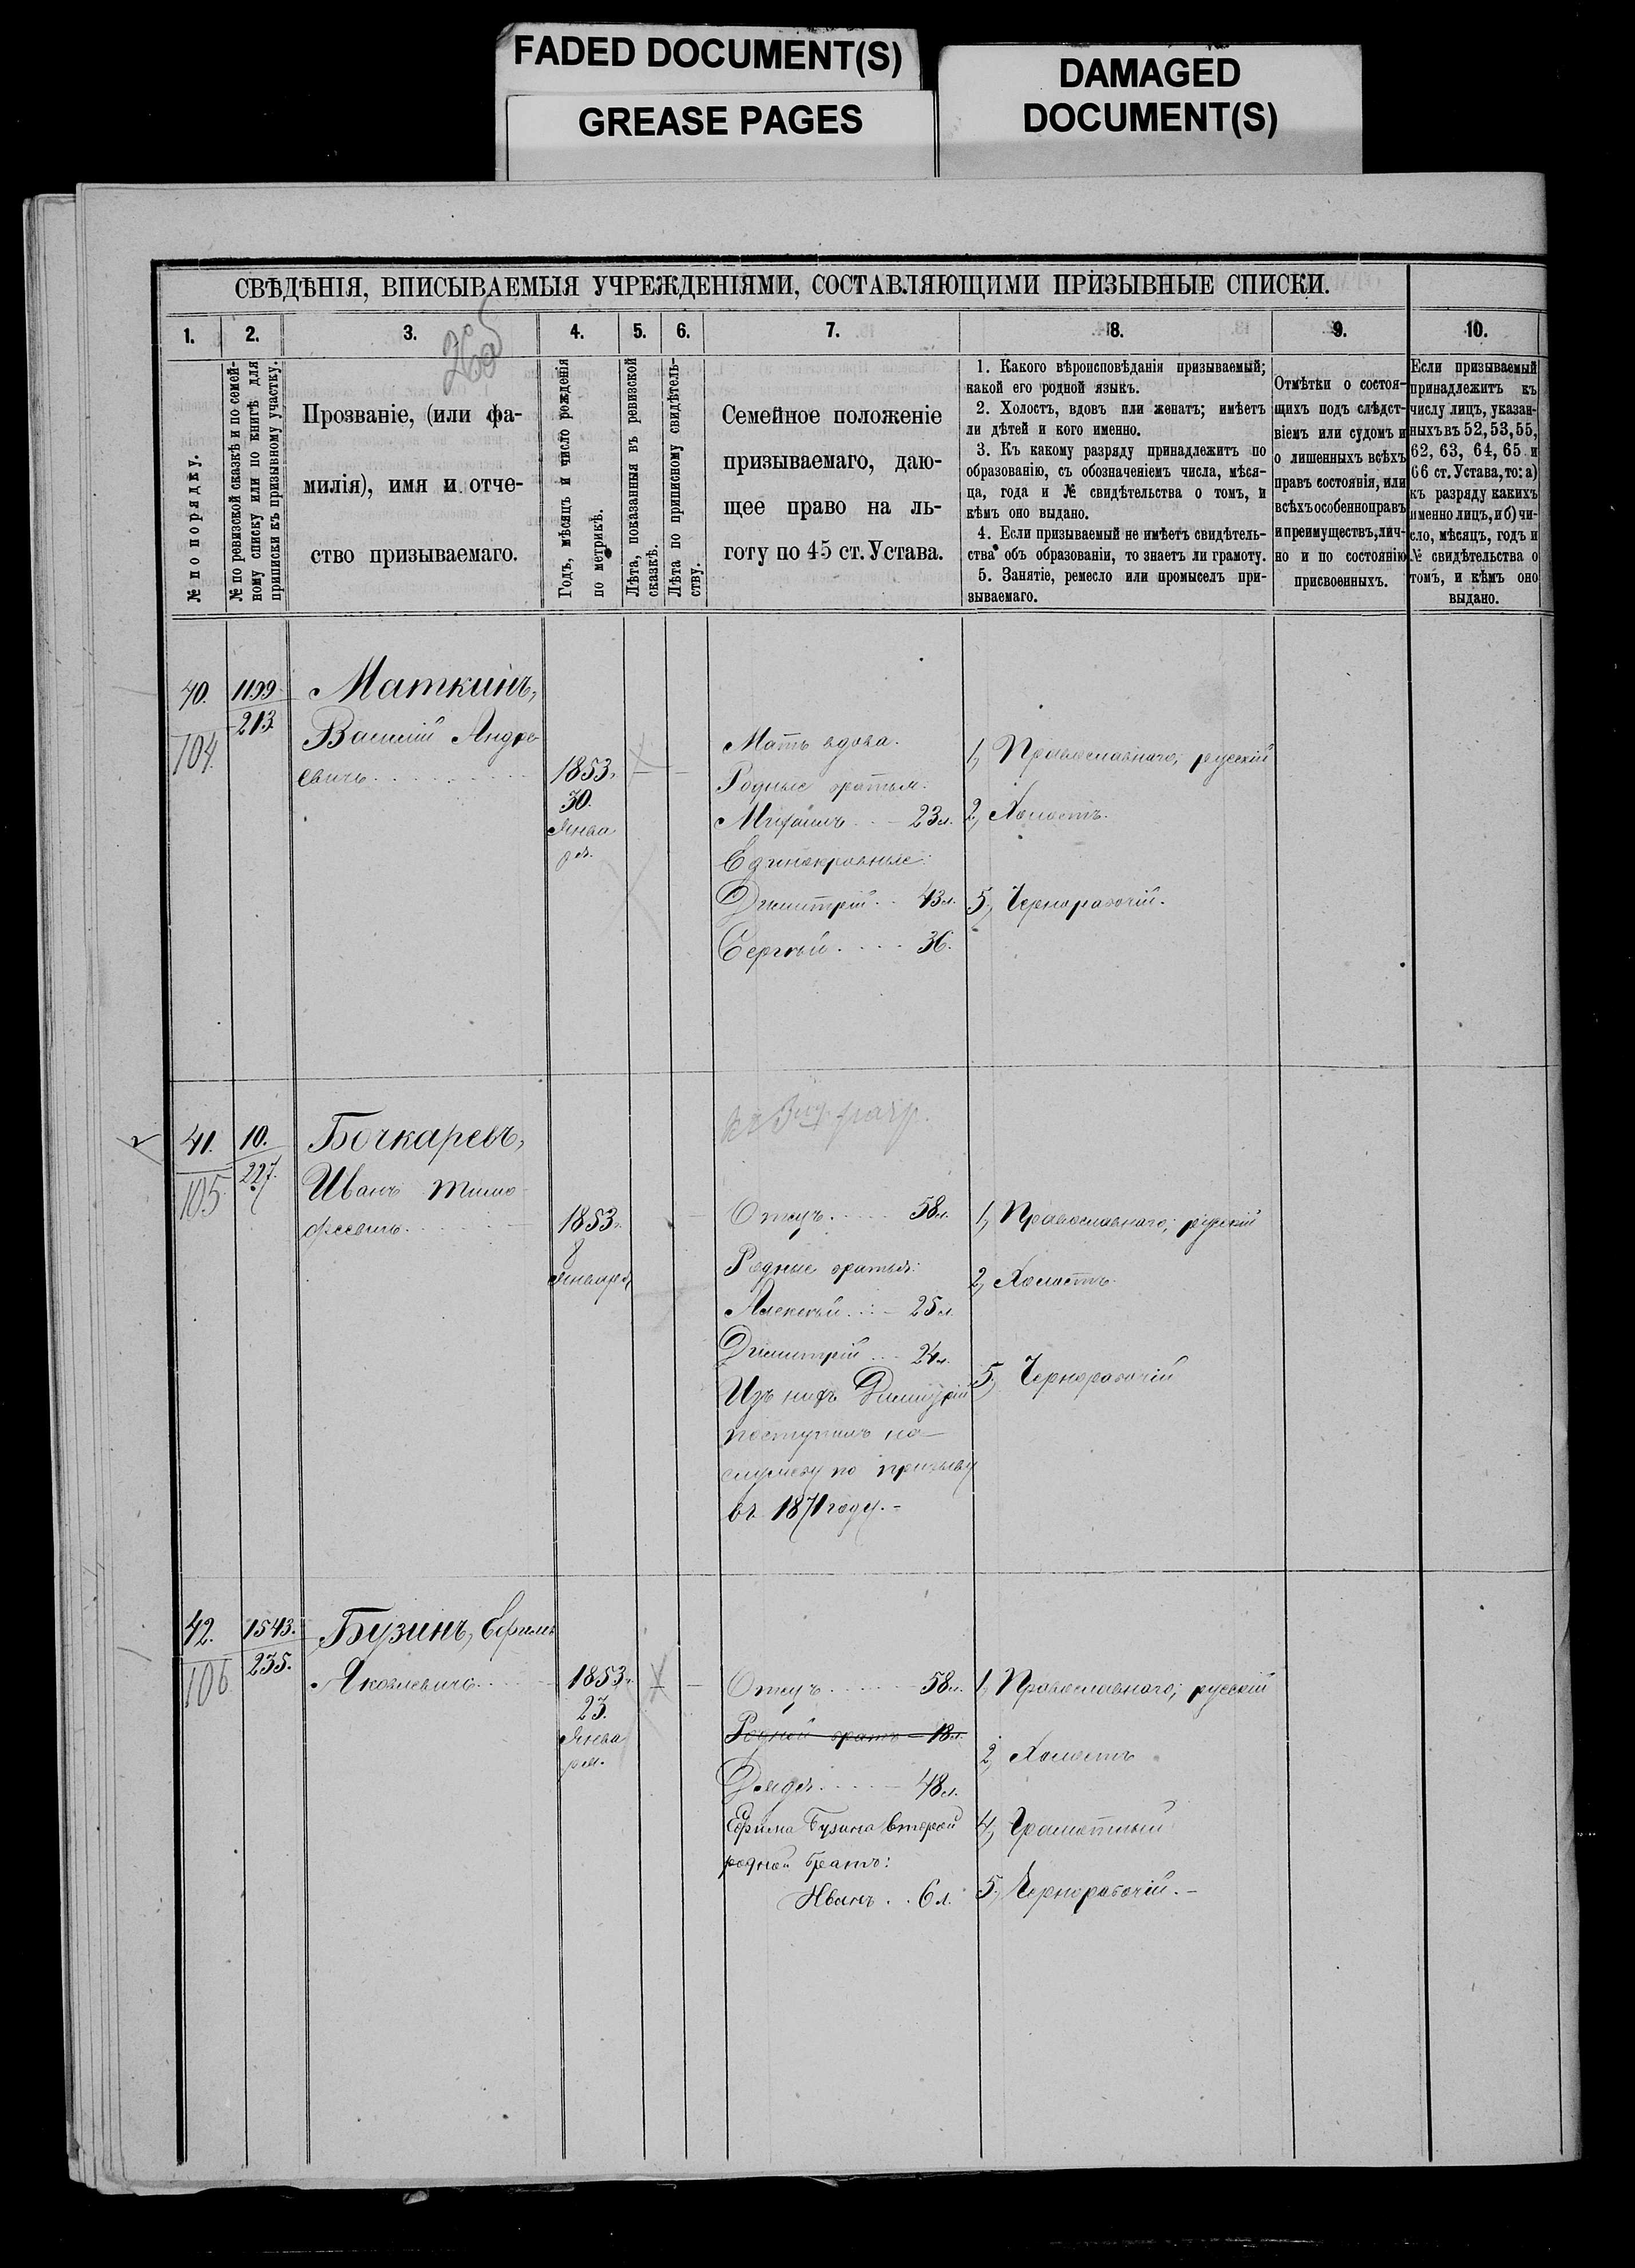 FADED DOCUMENT(S)
GREASE PAGES
DAMAGED
DOCUMENT(S)
СВѢДѢНІЯ, ВПИСЫВАЕМЫЯ УЧРЕЖДЕНІЯМИ, СОСТАВЛЯЮЩИМИ ПРИЗЫВНЫЕ СПИСКИ.
1.
2.
3.
4.
5.
6.
7.
8.
9.
10.
№ по порядку.
№ по ревизской сказкѣ и по семей-
ному списку или по книгѣ для
приписки къ призывному участку.
Прозваніе, (или фа-
милія), имя и отче-
ство призываемаго.
Годъ, мѣсяцъ и число рожденія
по метрикѣ.
Лѣта, показанныя въ ревизской
сказкѣ.
Лѣта по приписному свидѣтель-
ству.
Семейное положеніе
призываемаго, даю-
щее право на ль-
готу по 45 ст. Устава.
1. Какого вѣроисповѣданія призываемый;
какой его родной языкъ.
2. Холостъ, вдовъ или женатъ; имѣетъ
ли дѣтей и кого именно.
3. Къ какому разряду принадлежитъ по
образованію, съ обозначеніемъ числа, мѣся-
ца, года и № свидѣтельства о томъ, и
кѣмъ оно выдано.
4. Если призываемый не имѣетъ свидѣтель-
ства объ образованіи, то знаетъ ли грамоту.
5. Занятіе, ремесло или промыселъ при-
зываемаго.
Отмѣтки о состоя-
щихъ подъ слѣдст-
віемъ или судомъ и
о лишенныхъ всѣхъ
правъ состоянія, или
всѣхъ особенно правъ
и преимуществъ, лич-
но и по состоянію
присвоенныхъ.
Если призываемый
принадлежитъ къ
числу лицъ, указан-
ныхъ въ 52, 53, 55,
62, 63, 64, 65 и
66 ст. Устава, то: а)
къ разряду какихъ
именно лицъ, и б) чи-
сло, мѣсяцъ, годъ и
№ свидѣтельства о
томъ, и кѣмъ оно
выдано.
40.
104.
1199
213
Маткинъ,
Василій Андре-
евичъ
1853.
30.
Янва
ря.
Мать вдова.
Родные братья:
Михаилъ 23 л.
Единокровные:
Димитрій 43 л.
Сергѣй 36.
1, Православнаго; русскій
2, Холостъ.
5, Чернорабочій.
41.
105
10.
227.
Бочкаревъ,
Иванъ Тимо-
феевичъ
1853.
8
Января
Отецъ 58 л.
Родные братья:
Алексѣй 25 л.
Димитрій 24 л.
Изъ нихъ Димитрій
поступилъ на
службу по призыву
въ 1871 году. -
1, Православнаго; русскій
2, Холостъ
5, Чернорабочій
42.
106
1543.
235.
Бузинъ, Ефимъ
Яковлевичъ
1853.
23.
Янва
ря.
Отецъ 58 л.
Родной братъ 18 л.
Дядя 48 л.
Ефима Бузина второй
родной братъ:
Иванъ . . 6 л.
1, Православнаго; русскій
2, Холостъ
4, Грамотный
5, Чернорабочій. -